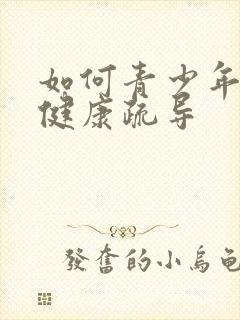 如何青少年
健康疏导
發奮的小烏龜